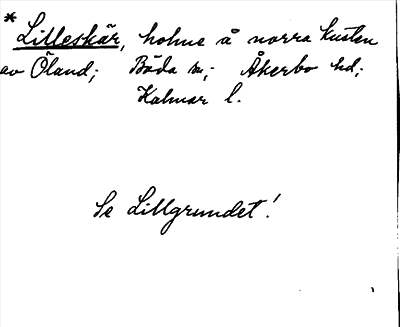 * Lilleskär, holme å norra kusten
av Öland; Böda sn; Åkerbo hd;
Kalmar l.
Se Lillgrundet!